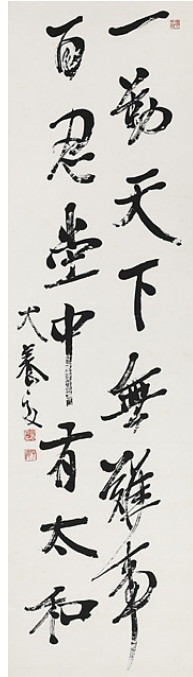 一勤天下無難事
百忍堂中有太和
犬養毅